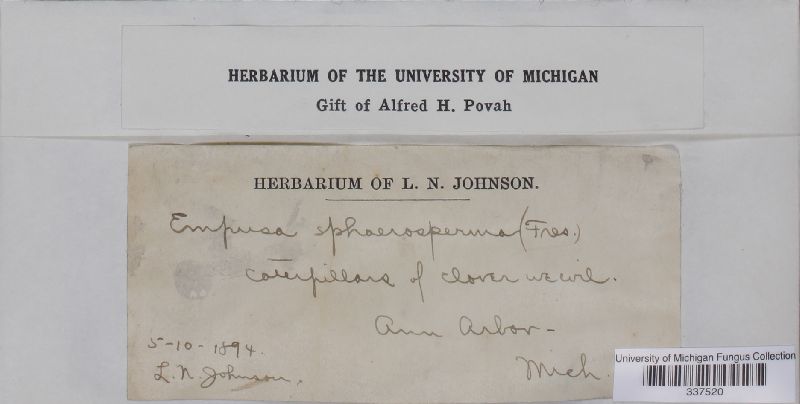 HERBARIUM OF THE UNIVERSITY OF MICHIGAN
Gift of Alfred H. Povah
HERBARIUM OF L. N. JOHNSON.
Empusa sphaerosperma (Fres.)
Caterpillars of clover weevil.
Ann Arbor -
5-10-1894.
L. N. Johnson.
Mich.
University of Michigan Fungus Collection
337520